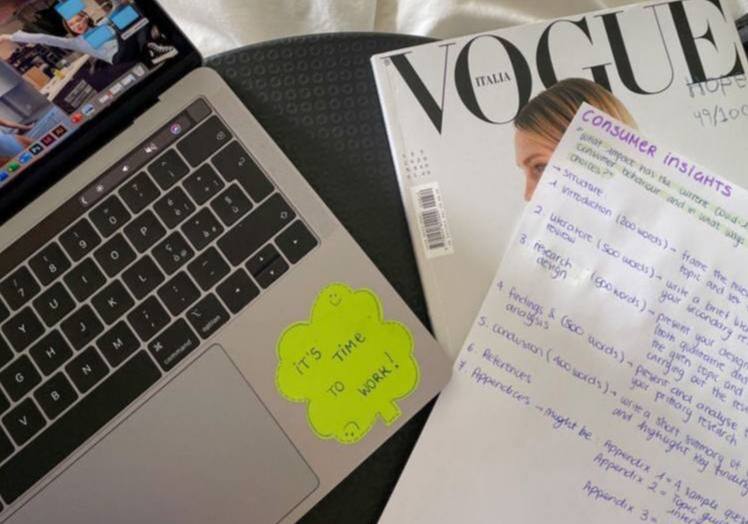 VOGUE
ITALIA
HOPE
49/100
IT'S TIME
TO WORK!
CONSUMER INSIGHTS
"What impact has the current covid
consumer behaviour and in what way
choices?"
→ structure:
1. Introduction (200 words) → frame the
topic and
2. Literature (500 words) → write a brief
review
your secondary
3. research (900 words) → present your design
design
(both quantitative
the given topic and
carrying out the
4. findings & (500 words) → present and analyse
analysis
your primary research
5. Conclusion (400 words) → write a short summary of
and highlight key findings
6. References
7. Appendices → might be: Appendix 1 = A sample
Appendix 2 = Topic
Appendix 3 =
7 8 9 0
Y U I O P
G H J K L
V B N M
command
option